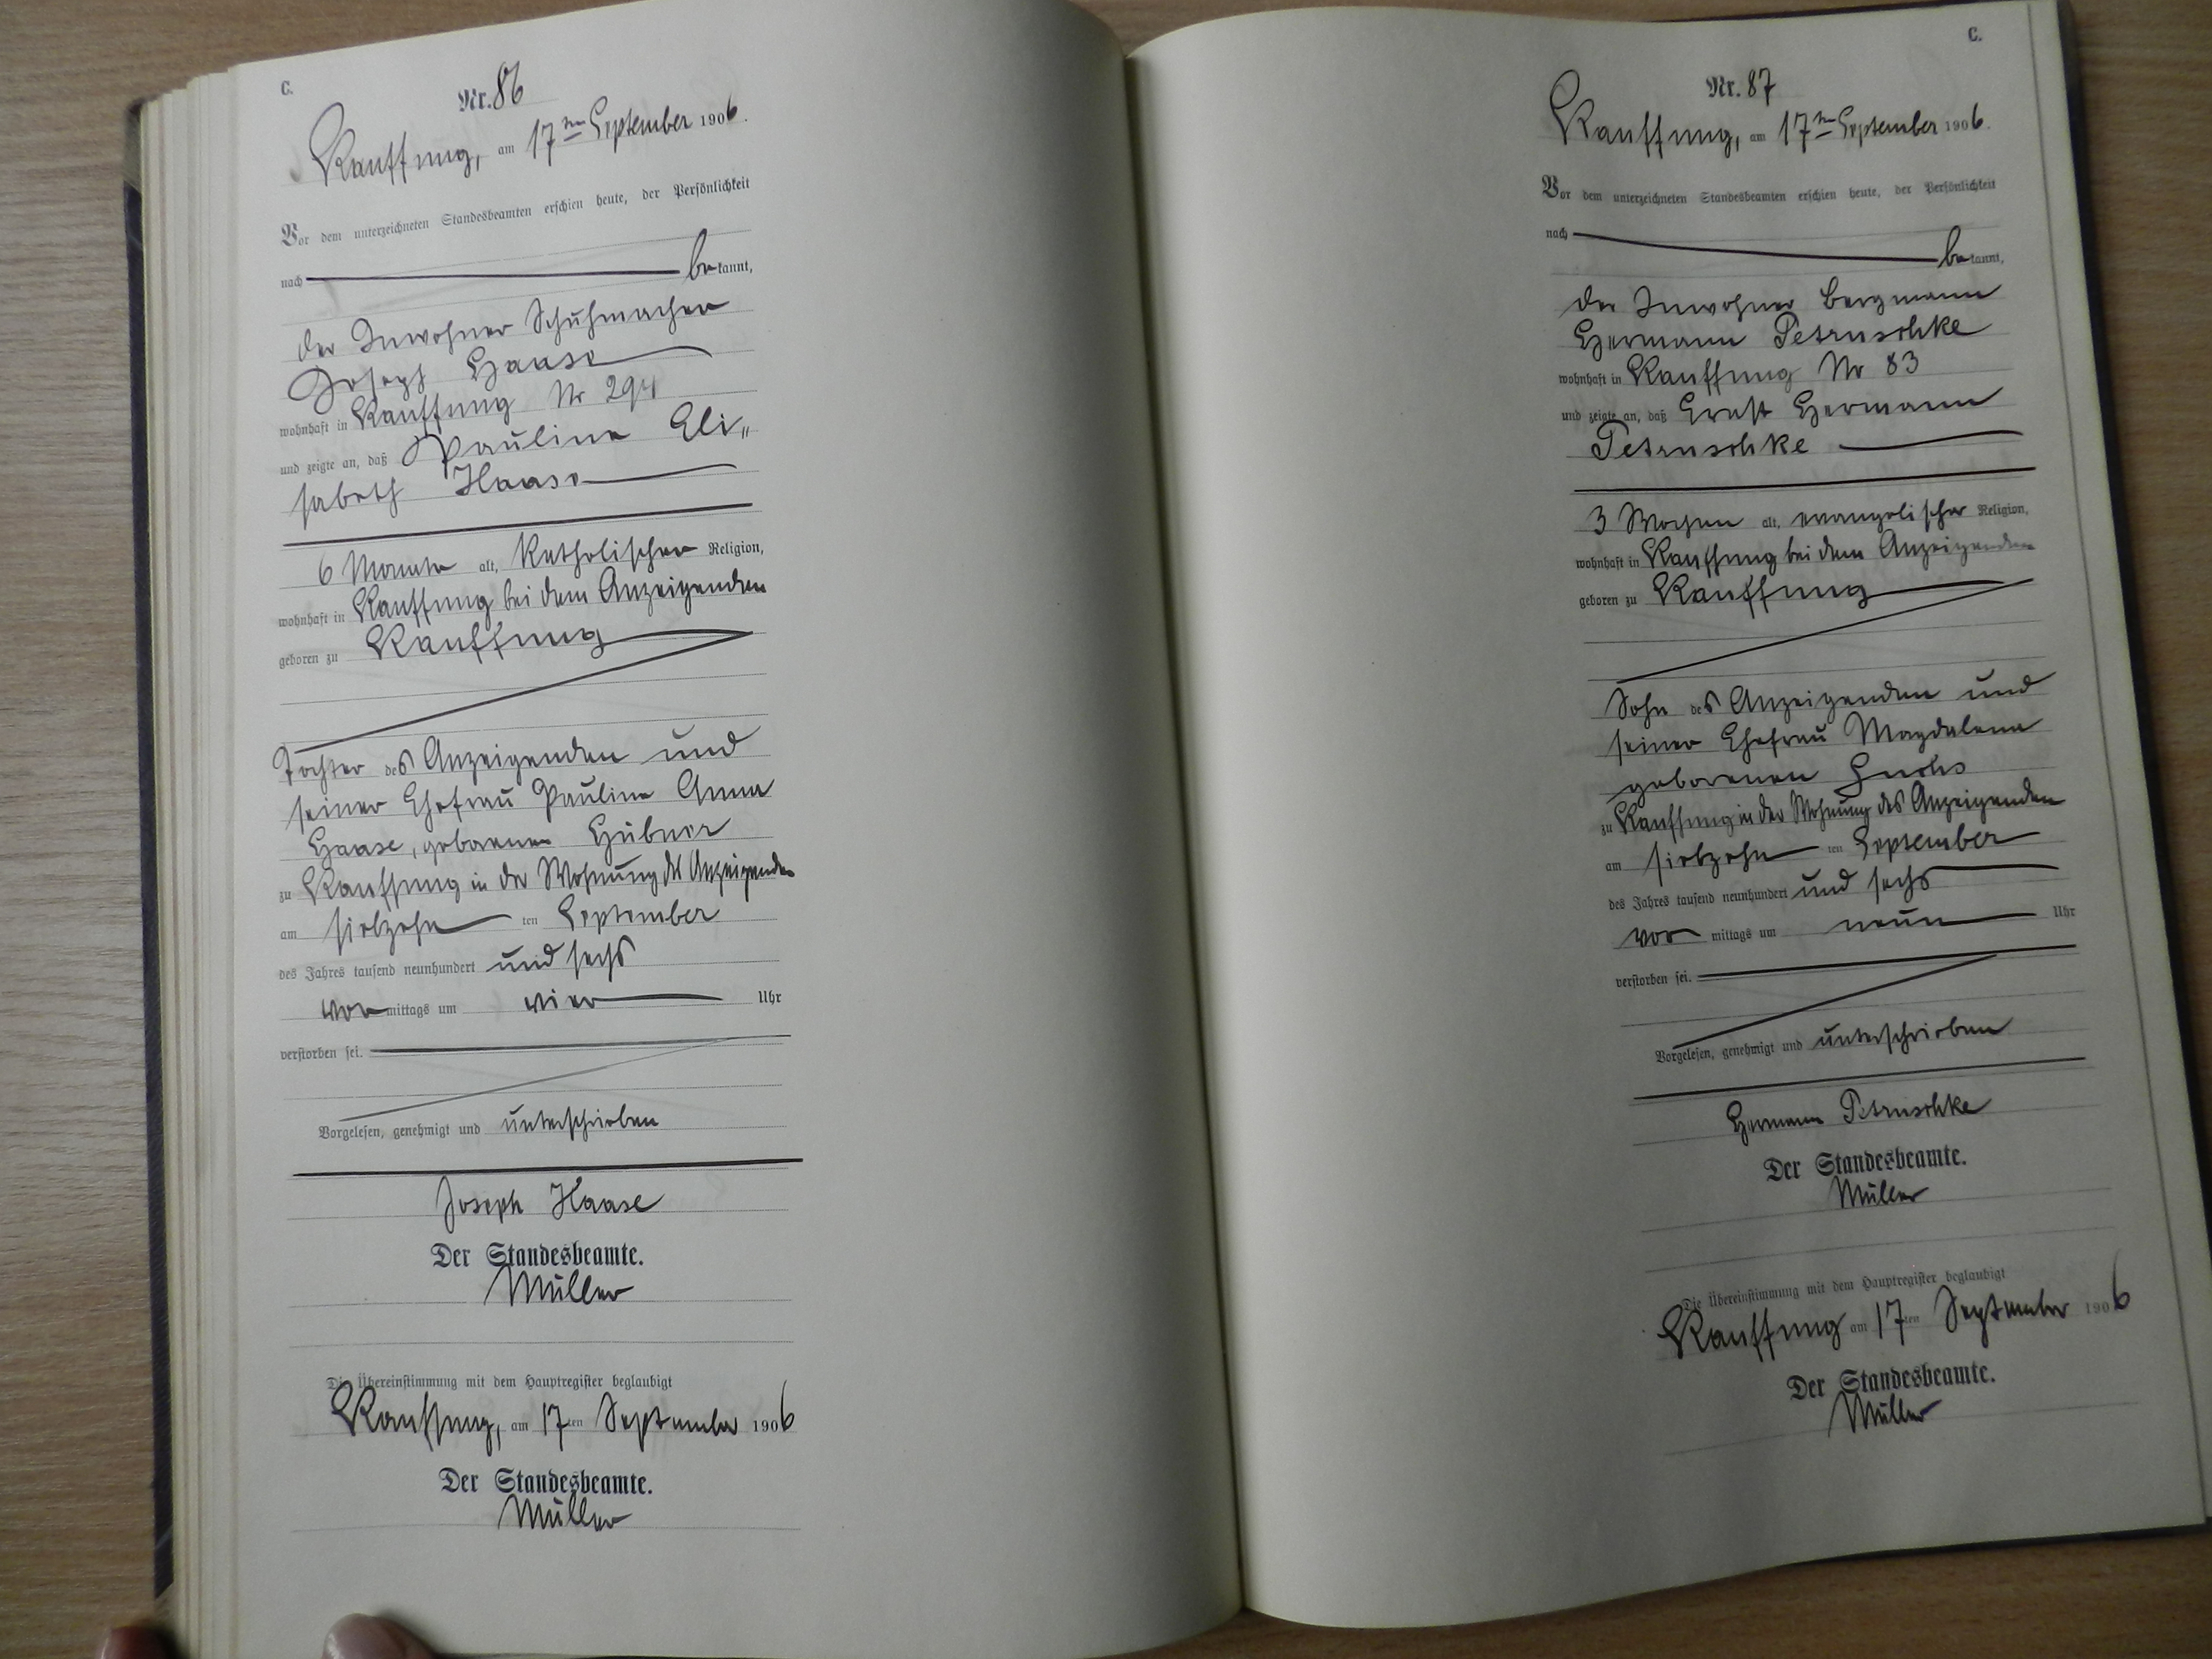 C.
Nr. 86
Kauffung, am 17ten September 1906.
Vor dem unterzeichneten Standesbeamten erschien heute, der Persönlichkeit
nach bekannt,
der Inwohner Schuhmacher
Joseph Haase
wohnhaft in Kauffung Nr 294
und zeigte an, daß Pauline Eli„
sabeth Haase
6 Monate alt, katholischer Religion,
wohnhaft in Kauffung bei dem Anzeigenden
geboren zu Kauffung
Tochter des Anzeigenden und
seiner Ehefrau Pauline Anna
Haase, geborenen Hübner
zu Kauffung in der Wohnung des Anzeigenden
am siebzehnten September
des Jahres tausend neunhundert und sechs
vormittags um vier Uhr
verstorben sei.
Vorgelesen, genehmigt und unterschrieben
Joseph Haase
Der Standesbeamte.
Müller
Die Übereinstimmung mit dem Hauptregister beglaubigt
Kauffung, am 17ten September 1906
Der Standesbeamte.
Müller
C.
Nr. 87
Kauffung, am 17ten September 1906.
Vor dem unterzeichneten Standesbeamten erschien heute, der Persönlichkeit
nach bekannt,
der Inwohner Bergmann
Hermann Petruschke
wohnhaft in Kauffung Nr 83
und zeigte an, daß Ernst Hermann
Petruschke
3 Wochen alt, evangelischer Religion,
wohnhaft in Kauffung bei dem Anzeigenden
geboren zu Kauffung
Sohn des Anzeigenden und
seiner Ehefrau Magdalena
geborenen Fuchs
zu Kauffung in der Wohnung des Anzeigenden
am siebzehnten September
des Jahres tausend neunhundert und sechs
vormittags um neun Uhr
verstorben sei.
Vorgelesen, genehmigt und unterschrieben
Hermann Petruschke
Der Standesbeamte.
Müller
Die Übereinstimmung mit dem Hauptregister beglaubigt
Kauffung am 17ten September 1906
Der Standesbeamte.
Müller